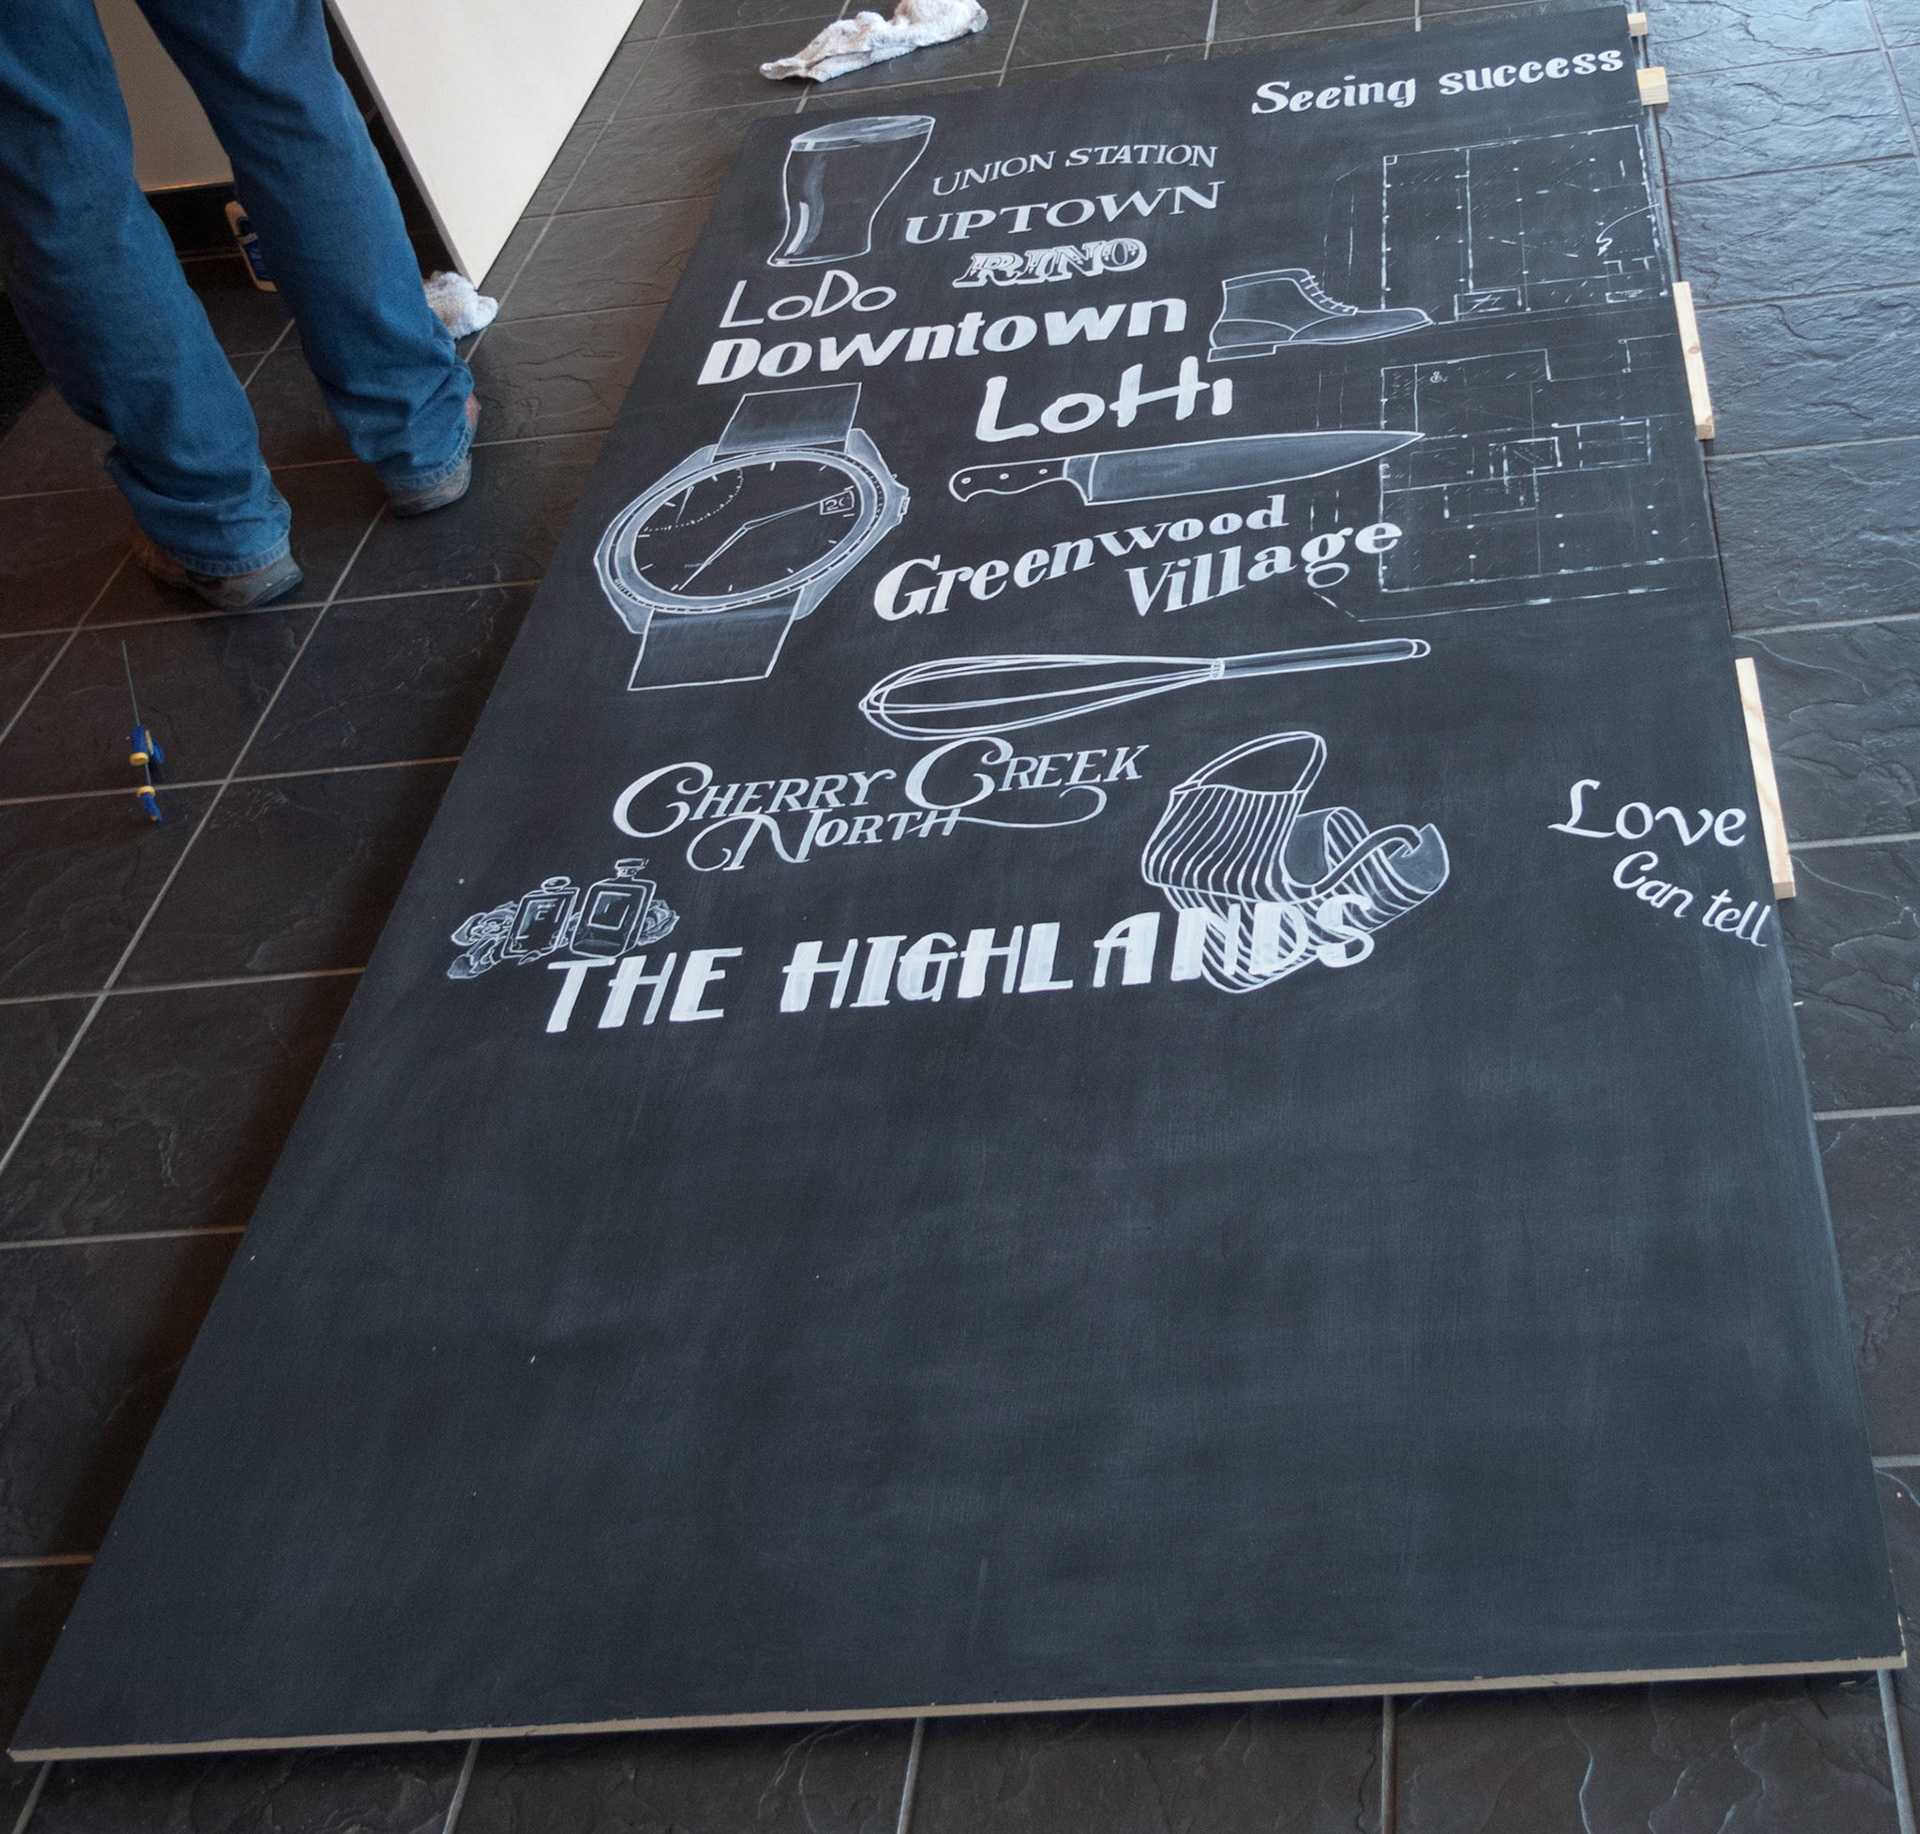 Seeing success
UNION STATION
UPTOWN
RINO
LoDo
Downtown
LoHi
20
Greenwood
Village
CHERRY CREEK
NORTH
Love
Can tell
THE HIGHLANDS